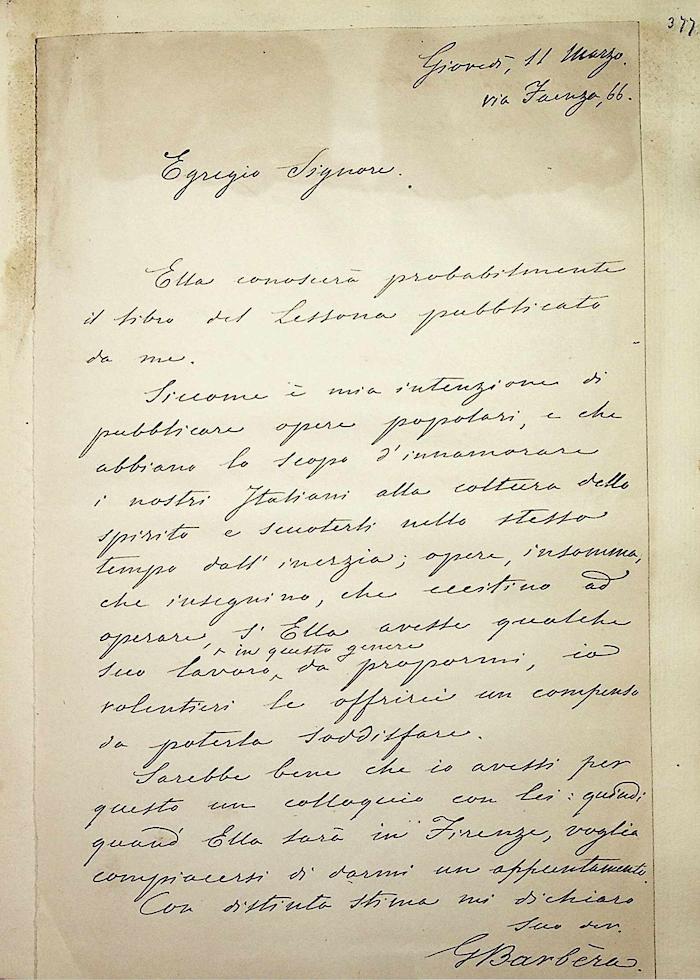 377
Giovedì, 11 Marzo.
via Faenza, 66.
Egregio Signore.
Ella conoscerà probabilmente
il libro del Lessona pubblicato
da me.
Siccome è mia intenzione di
pubblicare opere popolari, e che
abbiano lo scopo d'innamorare
i nostri Italiani alla coltura dello
spirito e scuoterli nello stesso
tempo dall'inerzia; opere, insomma,
che insegnino, che eccitino ad
operare, s'Ella avesse qualche
in questo genere
suo lavoro, da propormi, io
volentieri le offrirei un compenso
da poterla soddisfare.
Sarebbe bene che io avessi per
questo un colloquio con lei: quindi
quand' Ella sarà in Firenze, voglia
compiacersi di darmi un appuntamento.
Con distinta stima mi dichiaro
Suo dev.
G Barbèra.